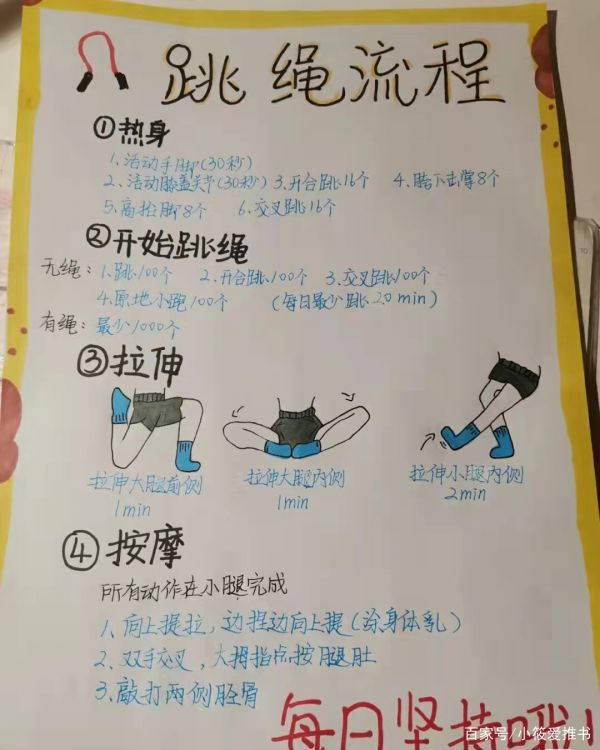 跳绳流程
①热身
1、活动手脚(30秒)
2、活动膝盖关节(30秒) 3、开合跳16个 4、胯下击掌8个
5、高抬脚8个 6、交叉跳16个
②开始跳绳
无绳：1、跳100个 2、开合跳100个 3、交叉跳100个
4、原地小跑100个 (每日最少跳20min)
有绳：最少1000个
③拉伸
拉伸大腿前侧
1min
拉伸大腿内侧
1min
拉伸小腿内侧
2min
④按摩
所有动作在小腿完成
1、向上提拉，边捏边向上提(涂身体乳)
2、双手交叉，大拇指点按腿肚
3、敲打两侧胫骨
每日坚持哦!
百家号/小筱爱推书